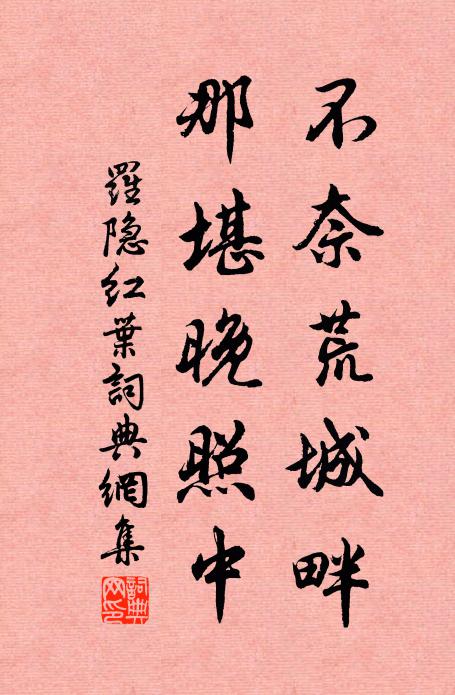 不奈荒城畔
那堪晚照中
羅隐红葉詞典網集
詞典网印